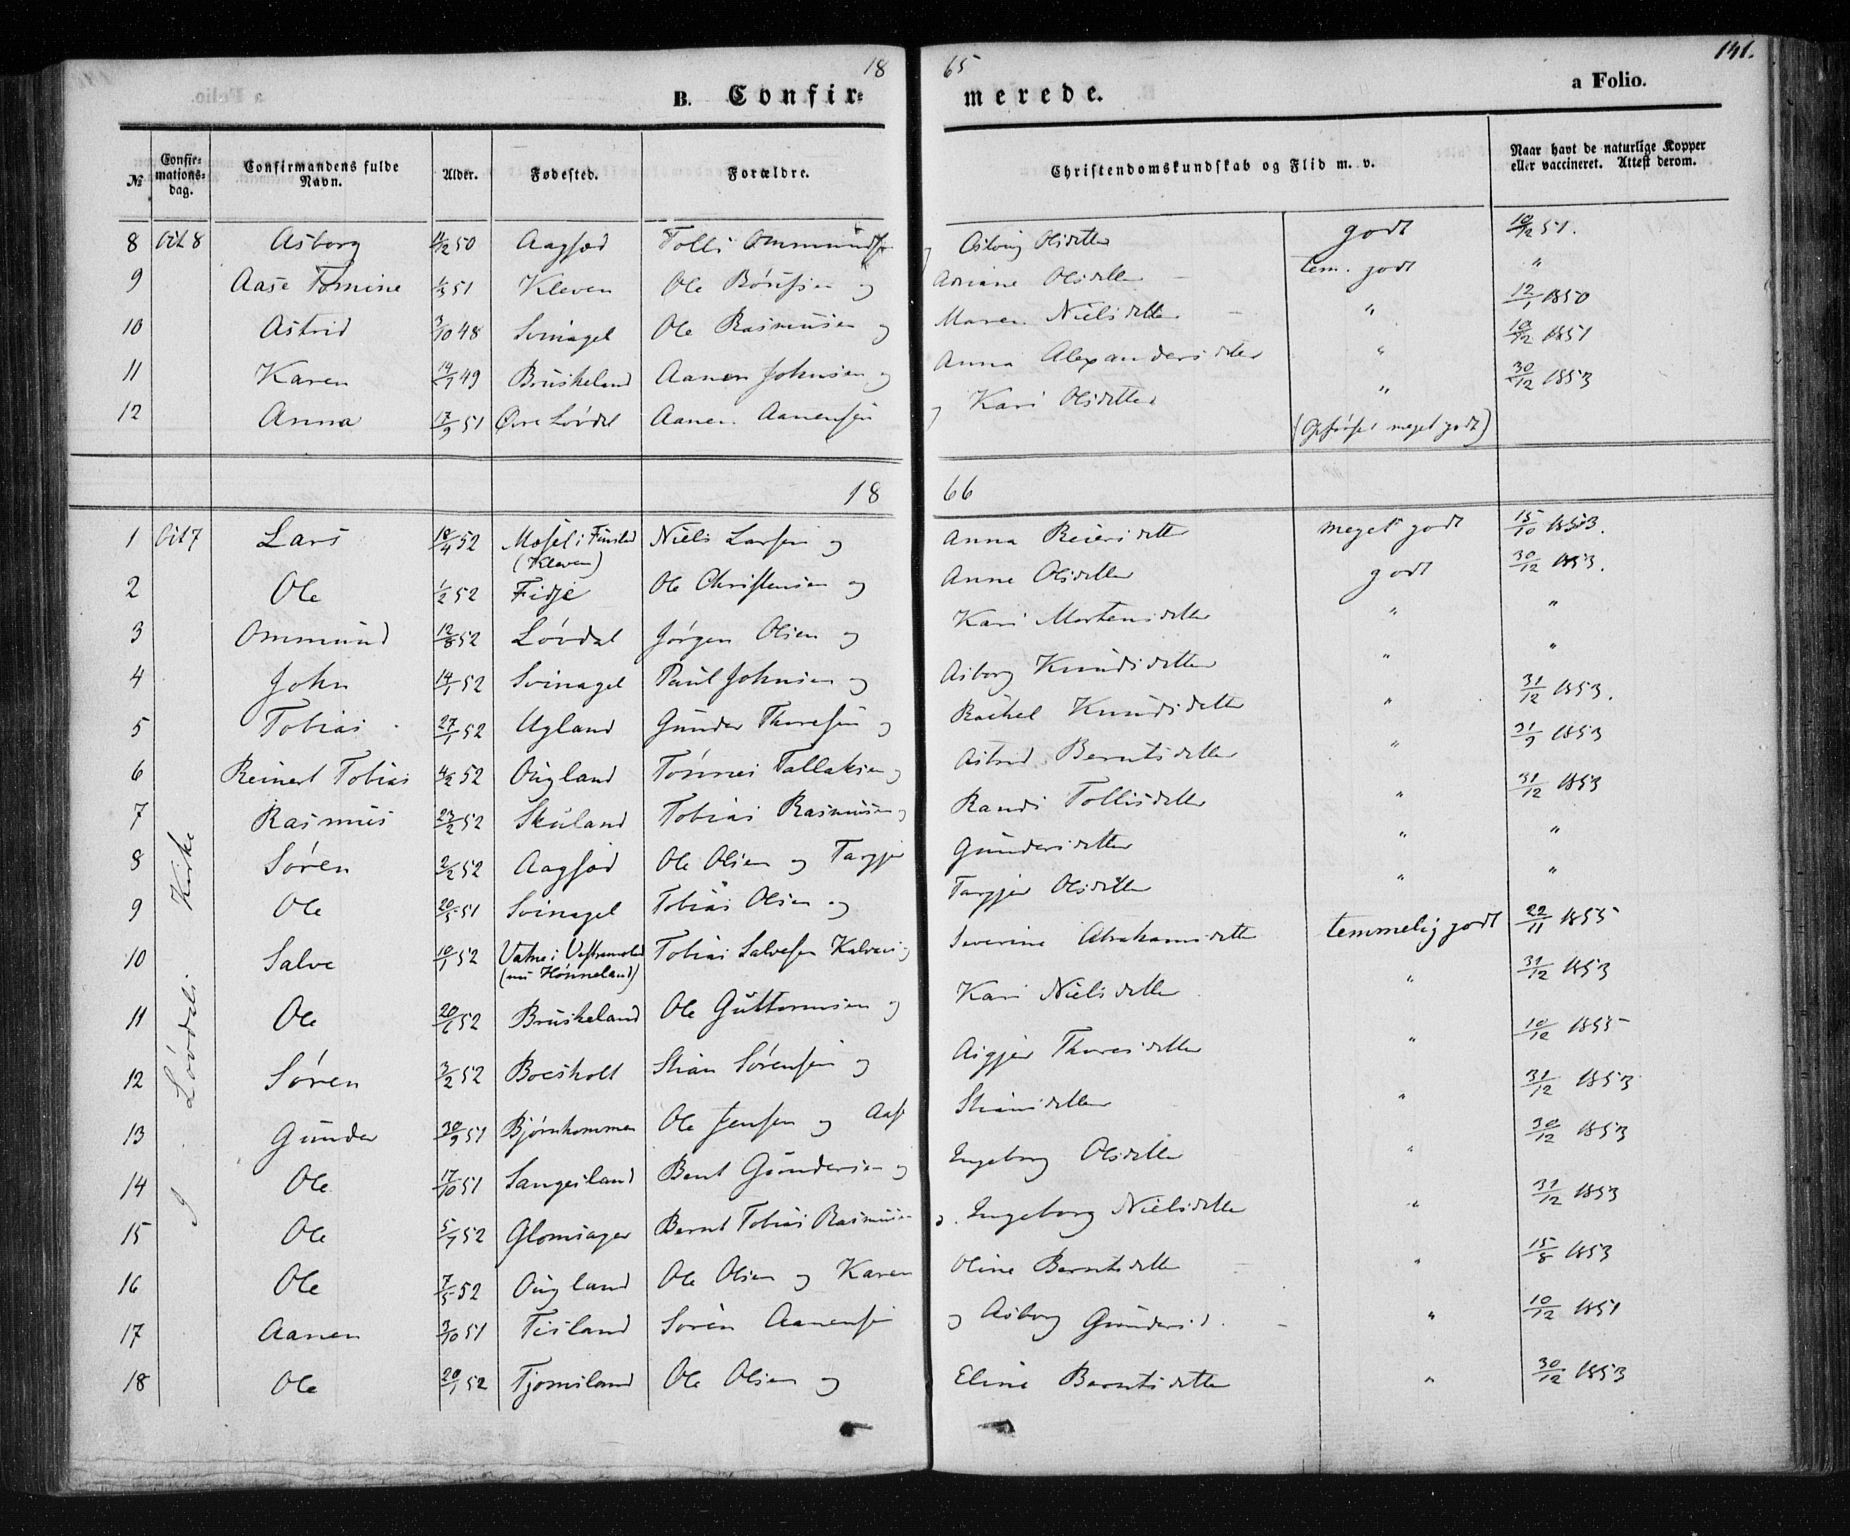 18 65 141.
B. Confir= merede. a Folio.
№ Confir=mations=dag. Confirmandens fulde Navn. Alder. Fødested. Forældre. Christendomskundskab og Flid m. v. Naar havt de naturlige Kopper eller vaccineret. Attest derom.
8 Oct 8 Asborg 50 Aagsød Tolli Ommundsen og Asborg Olsdatter godt 10/12 51.
9 Aase Tomine 1/3 51 Kleven Ole og Ariane Olsdatter tem. godt "
10 Astrid 3/10 48 Svinagel Ole Rasmusen og Maren Nielsdatter " 12/1 1850
11 Karen 14/1 49 Bruskeland Aanen Johnsen og Anna Alexandersdatter " 10/12 1851
12 Anna 17/9 51 Øvre Løvdal Aanen Aanensen og Kari Olsdatter " 30/12 1853
(Opførsel meget godt)
18 66
1 Oct 7 Lars 18/4 52 Mosel i Finsland (Kleven) Niels Larsen og Anna Reiersdatter meget godt 15/10 1853.
2 Ole 1/2 52 Fidje Ole Christensen og Anne Olsdatter godt 30/12 1853.
3 Ommund 12/8 52 Løvdal Jørgen Olsen og Kari Mortensdatter " "
4 John 14/1 52 Svinagel Paul Johnsen og Asborg Knudsdatter " "
5 Tobias 27/1 52 Ugland Gunder Thoresen og Rachel Knudsdatter " 31/12 1853.
6 Reinert Tobias 4/2 52 Ougland Tønnes Tallaksen og Astrid Berntsdatter " 31/9 1853
7 Rasmus 23/2 52 Skuland Tobias Rasmusen og Randi Tollisdatter " 31/12 1853
8 Søren 2/2 52 Aagsød Ole Olsen og Targjer Gundersdatter " "
9 Ole 20/5 51 Svinagel Tobias Olsen og Targjer Olsdatter " "
10 Salve 10/1 52 Vatne i (nu Hønneland) Tobias Salvesen og Severine Abrahamsdatter temmelig godt 22/11 1855
11 Ole 20/6 52 Bruskeland Ole Guttormsen og Kari Nielsdatter " 31/12 1853
12 Søren 3/2 52 Boesholt Stian Sørensen og Asgjer Thoresdatter " 10/12 1855
13 Gunder 30/9 51 Bjørnkommen Ole Jensen og Aase Stiansdatter " 31/12 1853
14 Ole 17/10 51 Sangesland Bent Gundersen og Ingeborg Olsdatter " 30/12 1853
15 Ole 5/7 52 Glomsager Bernt Tobias Rasmusen og Ingeborg Nielsdatter " 31/12 1853
16 Ole 7/5 52 Ougland Ole Olsen og Karen Oline Berntsdatter " 15/8 1853
17 Aanen 3/10 51 Tisland Søren Aanensen og Asborg Gundersd. " 10/12 1851
18 Ole 20/1 52 Tjomsland Ole Olsen og Eline Berntsdatter " 30/12 1853
I Løvdals Kirke